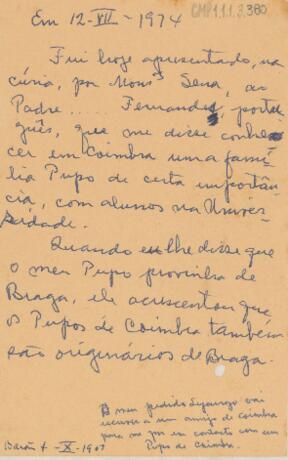 Em 12-VII-1974
CMP 1.1.3.380
Fui hoje apresentado, na
cúria, por Mons. Sena, ao
Padre .... Fernandes, portu-
guês, que me disse conhe-
cer em Coimbra uma famí-
lia Pupo de certa importân-
cia, com alunos na Univer-
sidade.
Quando eu lhe disse que
o meu Pupo provinha de
Braga, ele acrescentou que
os Pupos de Coimbra também
são originários de Braga.
A meu pedido vai
escrever a um amigo de Coimbra
para me por em contacto com um
Pupo de Coimbra.
-X-